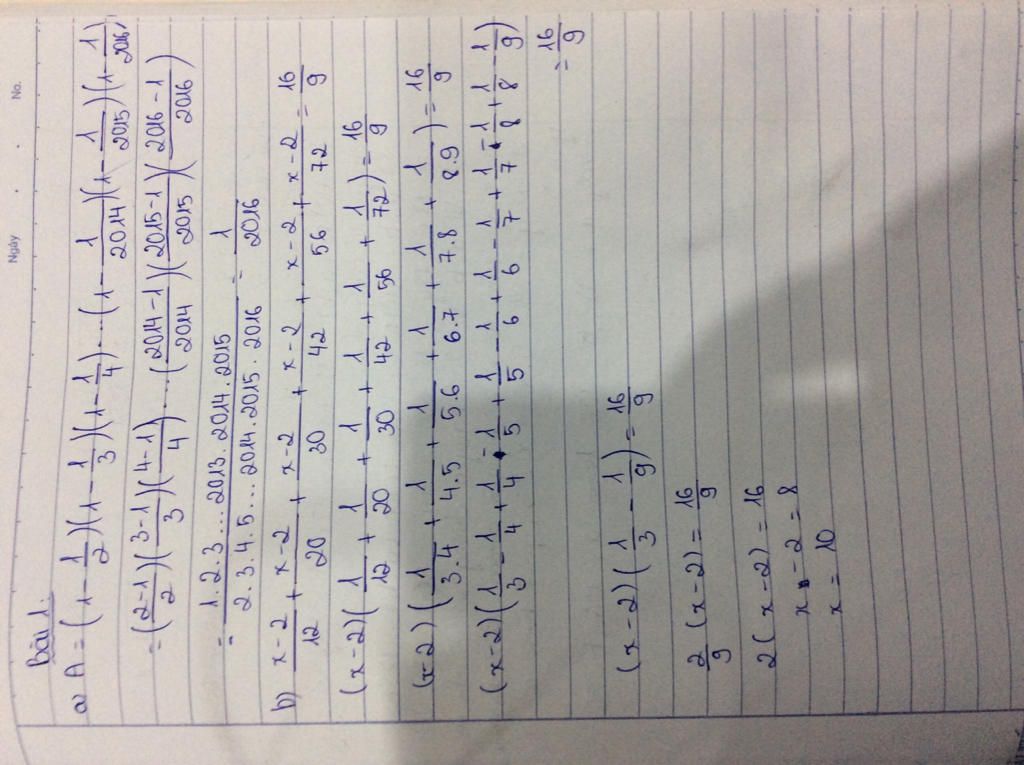 Ngày . . No.
Bài 1:
a) A = (1 - 1/2)(1 - 1/3)(1 - 1/4)...(1 - 1/2014)(1 - 1/2015)(1 - 1/2016)
= (2-1/2)(3-1/3)(4-1/4)...(2014-1/2014)(2015-1/2015)(2016-1/2016)
= 1.2.3...2013.2014.2015/2.3.4.5...2014.2015.2016 = 1/2016
b) x-2/12 + x-2/20 + x-2/30 + x-2/42 + x-2/56 + x-2/72 = 16/9
(x-2)(1/12 + 1/20 + 1/30 + 1/42 + 1/56 + 1/72) = 16/9
(x-2)(1/3.4 + 1/4.5 + 1/5.6 + 1/6.7 + 1/7.8 + 1/8.9) = 16/9
(x-2)(1/3 - 1/4 + 1/4 - 1/5 + 1/5 - 1/6 + 1/6 - 1/7 + 1/7 - 1/8 + 1/8 - 1/9)
= 16/9
(x-2)(1/3 - 1/9) = 16/9
2/9 (x-2) = 16/9
2(x-2) = 16
x - 2 = 8
x = 10